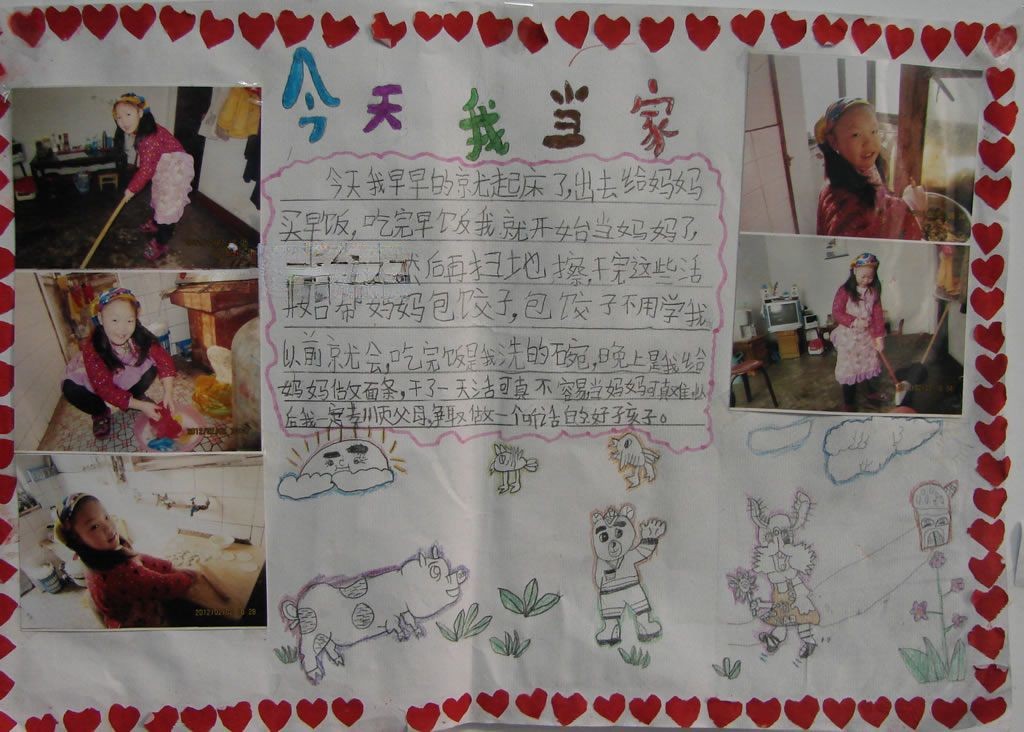 今天我当家
今天我早早的就起床了,出去给妈妈
买早饭,吃完早饭我就开始当妈妈了,
然后再扫地 擦,干完这些活
妈妈包饺子,包饺子不用学我
以前就会,吃完饭是我洗的碗,晚上是我给
妈妈做面条,干了一天活可真不容易当妈妈可真难以
后我一定孝顺父母,争取做一个听话的好孩子。